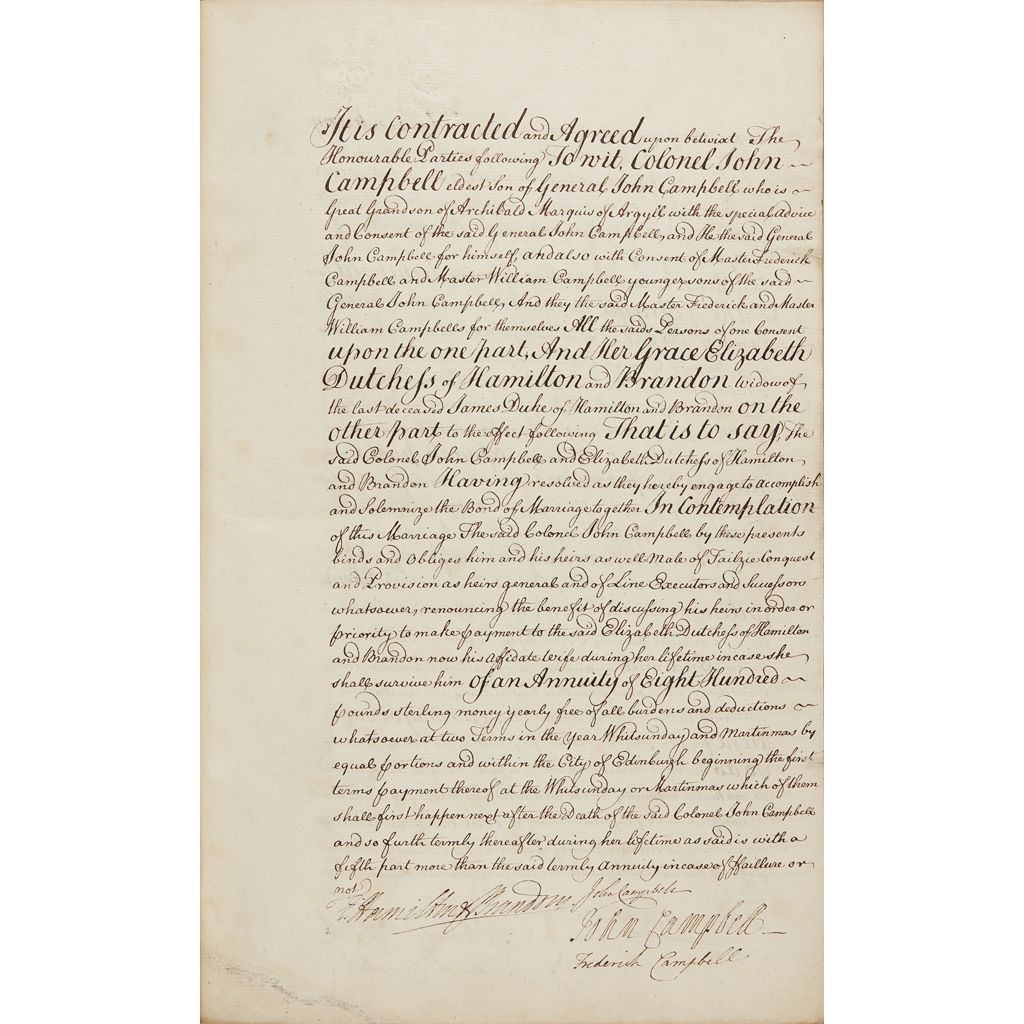 It is Contracted and Agreed upon betwixt The
Honourable Parties following To wit, Colonel John
Campbell eldest Son of General John Campbell who is
Great Grandson of Archibald Marquis of Argyll with the special Advice
and Consent of the said General John Campbell, and He the said General
John Campbell for himself, and also with Consent of Master Frederick
Campbell and Master William Campbell younger sons of the said
General John Campbell, And they the said Master Frederick and Master
William Campbells for themselves All the saids Persons of one Consent
upon the one part, And Her Grace Elizabeth
Dutchess of Hamilton and Brandon Widow of
the last deceased James Duke of Hamilton and Brandon on the
other part to the effect following That is to say, The
said Colonel John Campbell and Elizabeth Dutchess of Hamilton
and Brandon Having resolved as they hereby engage to accomplish
and Solemnize the Bond of Marriage together In Contemplation
of this Marriage The said Colonel John Campbell by these presents
binds and obliges him and his heirs as well Male of Tailzie Conquest
and Provision as heirs general and of Line Executors and Successors
whatsoever, renouncing the benefit of discussing his heirs in order or
priority to make payment to the said Elizabeth Dutchess of Hamilton
and Brandon now his affidate wife during her lifetime incase she
shall survive him Of an Annuity of Eight Hundred
pounds sterling money yearly free of all burdens and deductions
whatsoever at two Terms in the Year Whitsunday and Martinmas by
equal portions and within the City of Edinburgh beginning the first
terms payment thereof at the Whitsunday or Martinmas which of them
shall first happen next after the Death of the said Colonel John Campbell
and so furth termly thereafter during her lifetime as said is with a
fifth part more than the said termly Annuity incase of ffaillure or
not
E: Hamilton & Brandon. John Campbell
John Campbell
Frederick Campbell
2